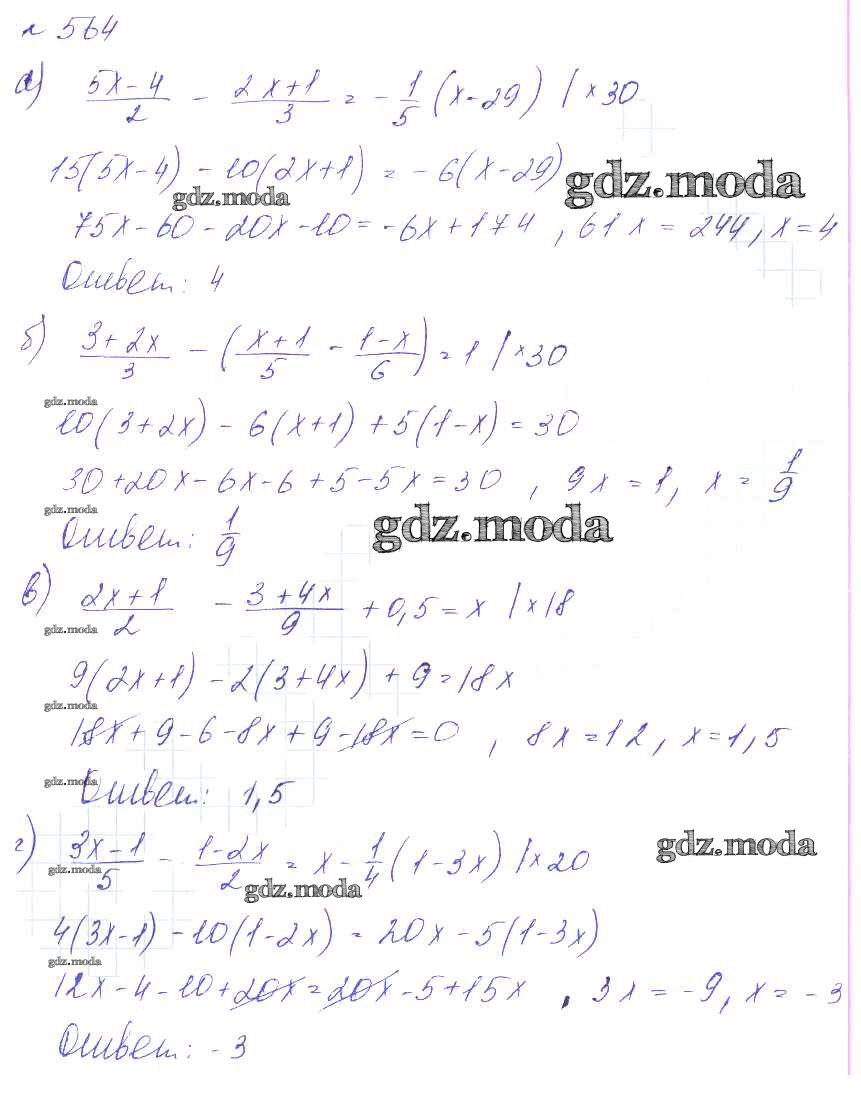 № 564
а) (5x-4)/2 - (2x+1)/3 = -1/5 (x-29) |×30
15(5x-4) - 10(2x+1) = -6(x-29)
gdz.moda gdz.moda
75x-60-20x-10=-6x+174, 61x=244, x=4
Ответ: 4
б) (3+2x)/3 - ((x+1)/5 - (1-x)/6) = 1 |×30
gdz.moda
10(3+2x) - 6(x+1) + 5(1-x) = 30
30+20x-6x-6+5-5x=30, 9x=1, x=1/9
gdz.moda gdz.moda
Ответ: 1/9
в) (2x+1)/2 - (3+4x)/9 + 0,5 = x |×18
gdz.moda
9(2x+1) - 2(3+4x) + 9 = 18x
gdz.moda
18x+9-6-8x+9-18x=0, 8x=12, x=1,5
gdz.moda
Ответ: 1,5
г) (3x-1)/5 - (1-2x)/2 = x - 1/4 (1-3x) |×20
gdz.moda gdz.moda gdz.moda
4(3x-1) - 10(1-2x) = 20x - 5(1-3x)
gdz.moda
12x-4-10+20x=20x-5+15x, 3x=-9, x=-3
Ответ: -3